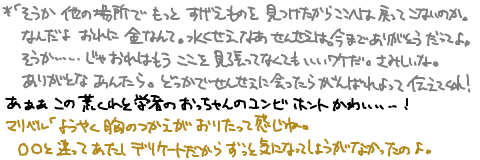 *「そうか 他の場所で もっと すげえものを 見つけたからここへは 戻ってこないのか。
なんだよ おれに 金なんて。水くせえなあ せんせえは。今まで ありがとう だってよ。
そうか……じゃ おれはもう ここを 見張ってなくても いいワケだ。さみしいな。
ありがとな あんたら。どっかで せんせえに 会ったら がんばれよって 伝えてくれ!
あぁぁ この 荒くれと 学者のおっちゃんのコンビ ホント かわいい…!
マリベル「ようやく 胸のつかえが おりたって 感じね。
○○と 違って あたし デリケートだから ずっと 気になって しょうがなかったのよ。